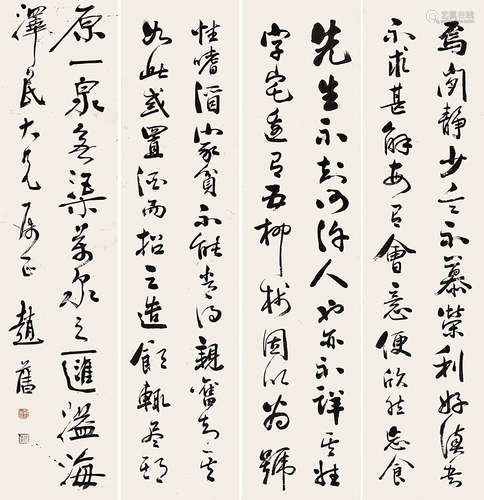 焉閑靜少言不慕榮利好讀書
不求甚解每有會意便欣然忘食
先生不知何許人也亦不詳其姓
字宅邊有五柳樹因以為號
性嗜酒家貧不能常得親舊知其
如此或置酒而招之造飲輒盡期
原一泉渠萬泉之匯海
澤民大兄屬正 趙舊